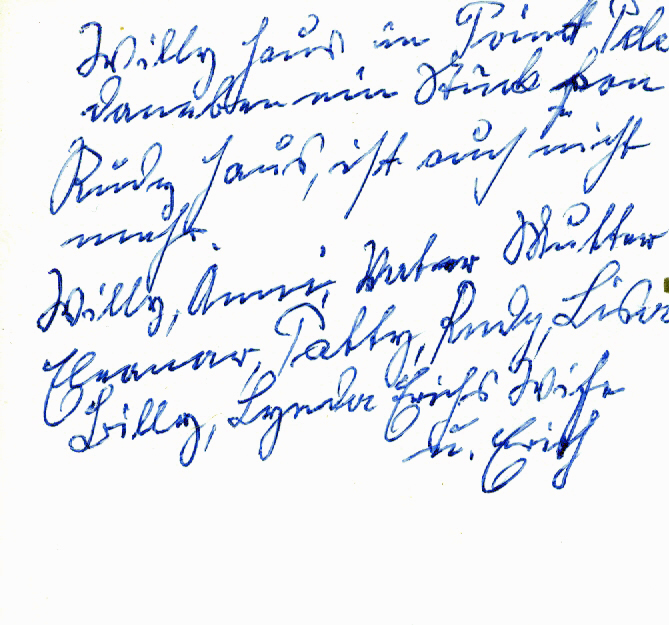 Willy haus in Point Pele
daneben ein Stück fon
Rudy haus, ist auch nicht
mehr.
Willy, Anni, Vater Mutter
Eleanor, Patty, Rudy, Lisa
Billy, Lynda Erichs Wife
u. Erich